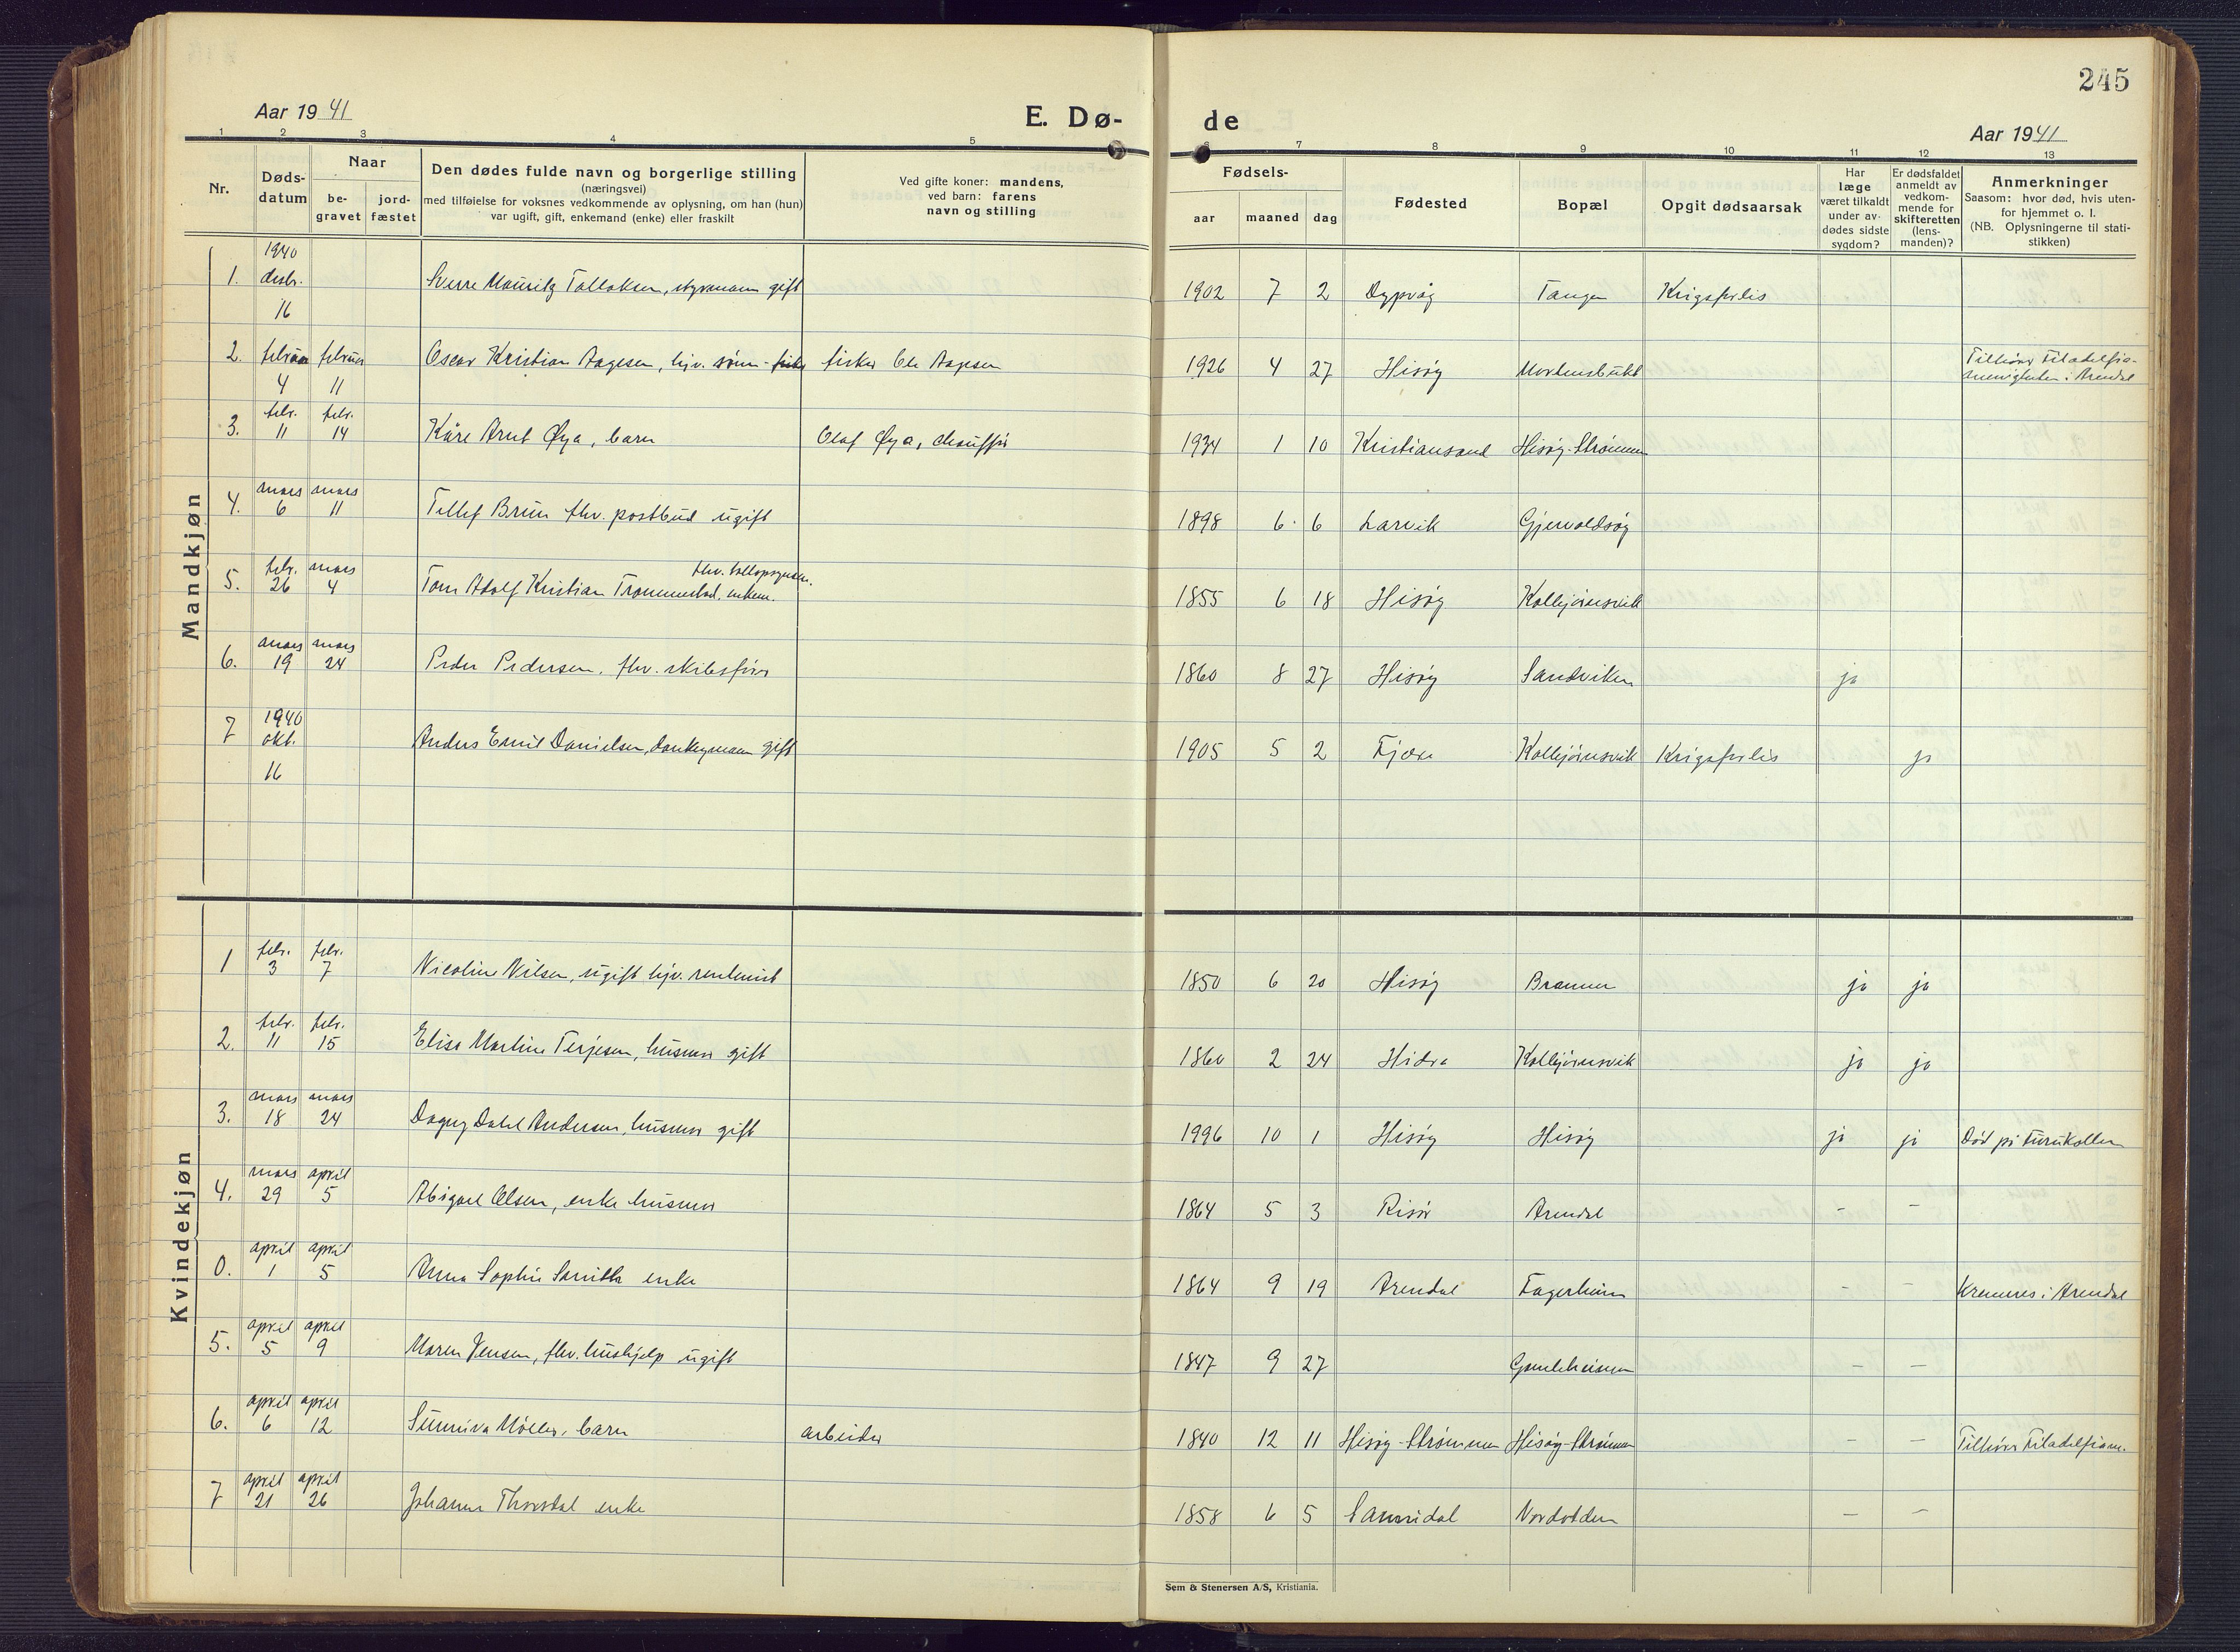 245
Aar 1941
E. Dø-
de
Aar 1941
1 2 3 4 5 6 7 8 9 10 11 12 13
Nr.
Døds-
datum
Naar
be-
gravet
jord-
fæstet
Den dødes fulde navn og borgerlige stilling
(næringsvei)
med tilføielse for voksnes vedkommende av oplysning, om han (hun)
var ugift, gift, enkemand (enke) eller fraskilt
Ved gifte koner: mandens,
ved barn: farens
navn og stilling
Fødsels-
aar maaned dag
Fødested
Bopæl
Opgit dødsaarsak
Har
læge
været tilkaldt
under av-
dødes sidste
sygdom?
Er dødsfaldet
anmeldt av
vedkom-
mende for
skifteretten
(lens-
manden)?
Anmerkninger
Saasom: hvor død, hvis uten-
for hjemmet o. l.
(NB. Oplysningerne til stati-
stikken)
Mandkjøn
1940
1. desbr. Sverre Mauritz Tallaksen, styrmann gift 1902 7 2 Dypvåg Tangen Krigsforlis
16
2. februar februar Oscar Kristian Aagesen, hjv. sønn - fisker fisker Ole Aagesen 1926 4 27 Hisøy Mortensbukt Tilhører Filadelfia-
4 11 menigheten i Arendal
febr. febr.
3. 11 14 Kåre Arnt Øya, barn Olaf Øya, chauffør 1934 1 10 Kristiansand Hisøy-Strømmen
mars mars
4. 6 11 Tellef Bruu fhv. postbud ugift 1898 6 6 Larvik Gjervoldsøy
febr. mars fhv. tollopsynsm.
5. 26 4 Tom Adolf Kristian Trommestad, enkem. 1855 6 18 Hisøy Kolbjørnsvik
mars mars
6. 19 24 Peder Pedersen, fhv. skibsfører 1860 8 27 Hisøy Sandviken ja
1940
7 okt. Anders Emil Danielsen, donkeymann gift 1905 5 2 Fjære Kolbjørnsvik Krigsforlis ja
16
Kvindekjøn
febr. febr.
1 3 7 Nicoline Nilsen, ugift hjv. rentenist 1850 6 20 Hisøy Brannen ja ja
febr. febr.
2. 11 15 Elise Martine Terjesen, husmor gift 1860 2 24 Hidra Kolbjørnsvik ja ja
mars mars
3. 18 24 Dagny Dahl Andersen, husmor gift 1996 10 1 Hisøy Hisøy ja ja Død på Furukollen
mars april
4. 29 5 Abigael Olsen, enke husmor 1864 5 3 Risør Arendal - -
april april
0. 1 5 Anna Sophie Smith enke 1864 9 19 Arendal Fagerheim - - Kremeres i Arendal
april april
5. 5 9 Maren Jensen, fhv. hushjelp ugift 1847 9 27 Gamleheimen - -
april april
6. 6 12 Sunniva Møller, barn arbeider 1840 12 11 Hisøy-Strømmen Hisøy-Strømmen - - Tilhører Filadelfiam.
april april
7 21 26 Johanne Thorsdal enke 1858 6 5 Sannidal Nordodden - -
Sem & Stenersen A/S, Kristiania.